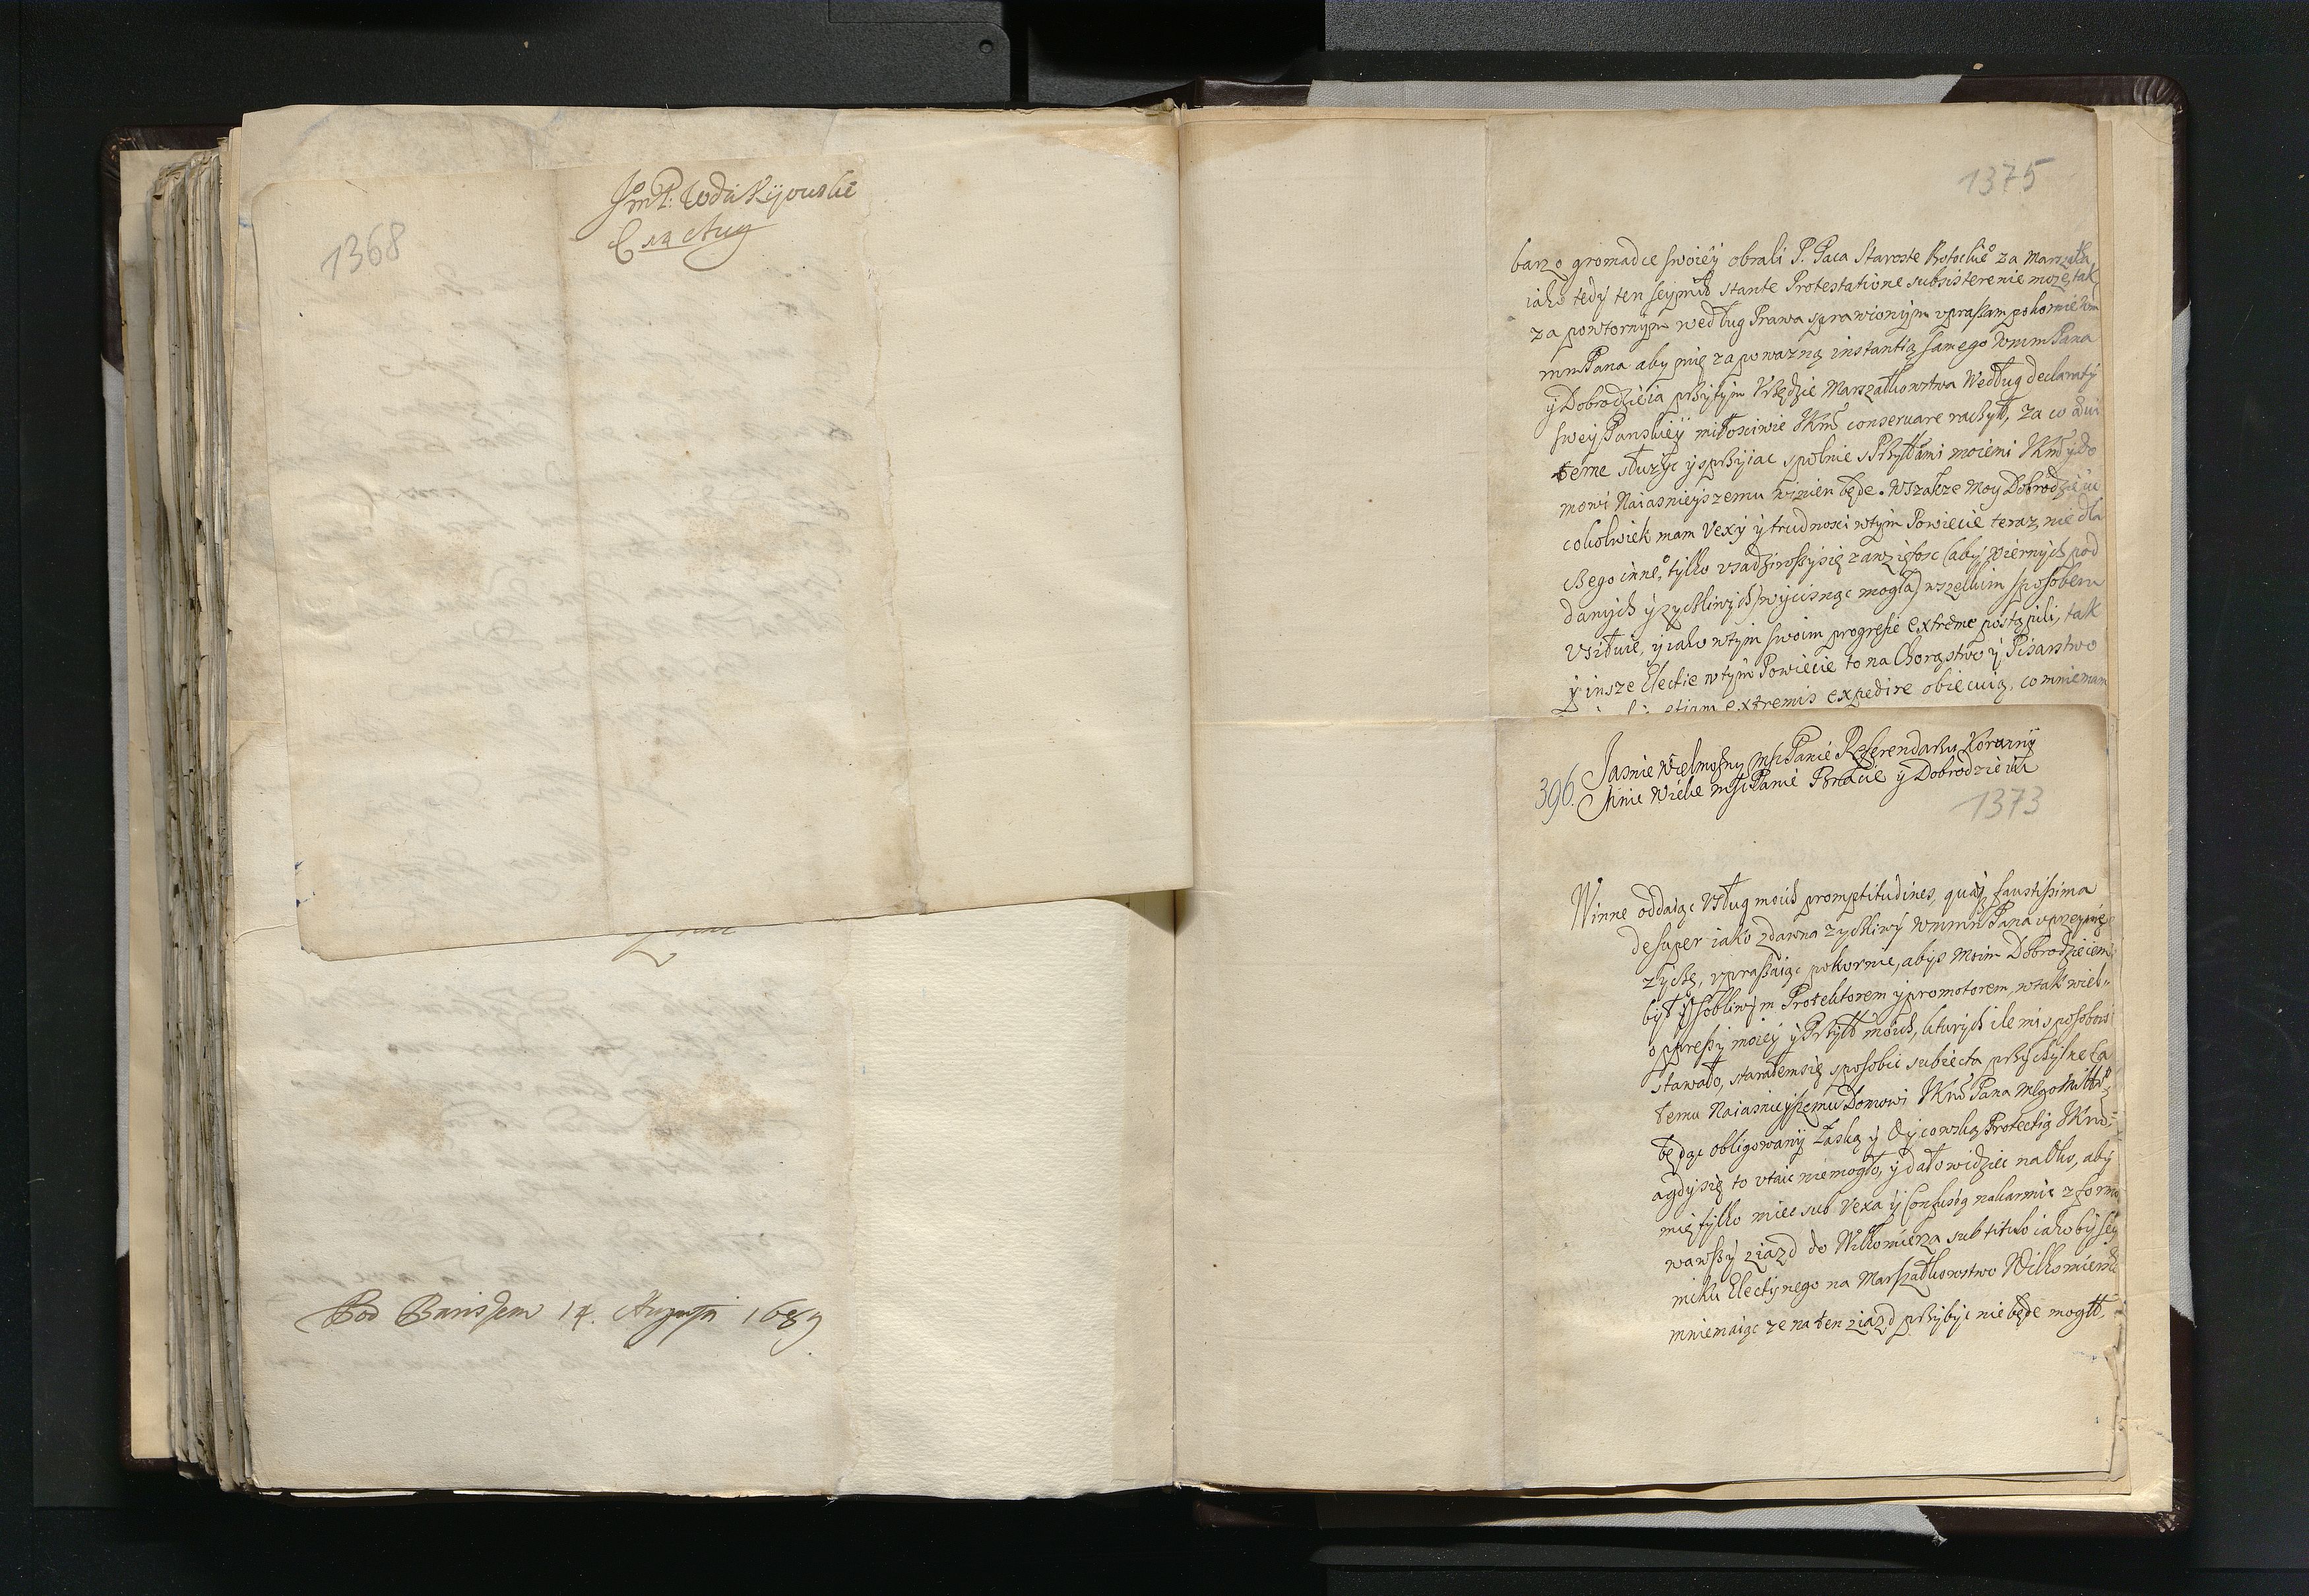 1368
JmP. Wodic Kijowskie
14 Aug
Pod Bariszem 14. Augusta 1689
1375
barzo gromadce swoiey obrali P. Paca Staroste za Marszałka
iako tedy ten seymik stante Protestatione subsistere nie moze, tak
za powtornym według Prawa sprawionym vpraszam pokornie Wm
mmPana aby mię za powazną instantią samego WmmPana
y Dobrodzieia przy tym Vrzędzie Marszałkowstwa Według declaratij
swey Panskiey miłosciwie JKM conseruare raczył, za co
służyc y sprzyiac spolnie s Przyłłami moiemi JKM y do
mowi Naiasnieyszemu winien będe. Wszakze Moy Dobrodzieiu
cokolwiek mam Vexy y trudnosci wtym Powiecie teraz nie dla
czego inneo, tylko vsadziwszy się zawziętosc (aby wiernych pod
danych y zyczliwych wycisnąc mogła) wszelkim sposobem
vsiłuie, y iako wtym swoim progresie extreme postąpili, tak
y insze Electie wtym Powiecie to na Chorąstwo y Pisarstwo
etiam extremis expedire obiecuią, co mniemam
396.
Jasnie Wielmożny Msci Panie Referendarzu Koronny
Mnie Wielce MsciPanie Bracie y Dobrodzieiu
1373
Winne oddaiąc Vsług moich promptitudines, quaeq faustissima
desuper iako zdawna zyczliwy WmmPana vprzeymie
zyczę, vpraszaiąc pokornie, abys Moim Dobrodzieiem
był y osobliwym Protektorem y promotorem, wtak wiel-
oppressij moiey y Przyłł moich, ktorych ile mi sposobnosci
stawało, starałem się sposobic subiecta przychylne ca
temu Naiasnieyszemu Domowi JKM Pana Mego Miłło
będąc obligowany Łaską y Oycowską Protectią JKM
a gdy się to vtaic niemogło, y dało widziec na oko, aby
mię tylko miec sub Vexa y Confusią nakarmic z formo
wawszy ziazd do Wiłkomierza sub titulo iakoby sey
miku Electijnego na Marszałkowstwo Wiłkomierski
mniemaiąc ze na ten ziazd przybyc nie będe mogłł,